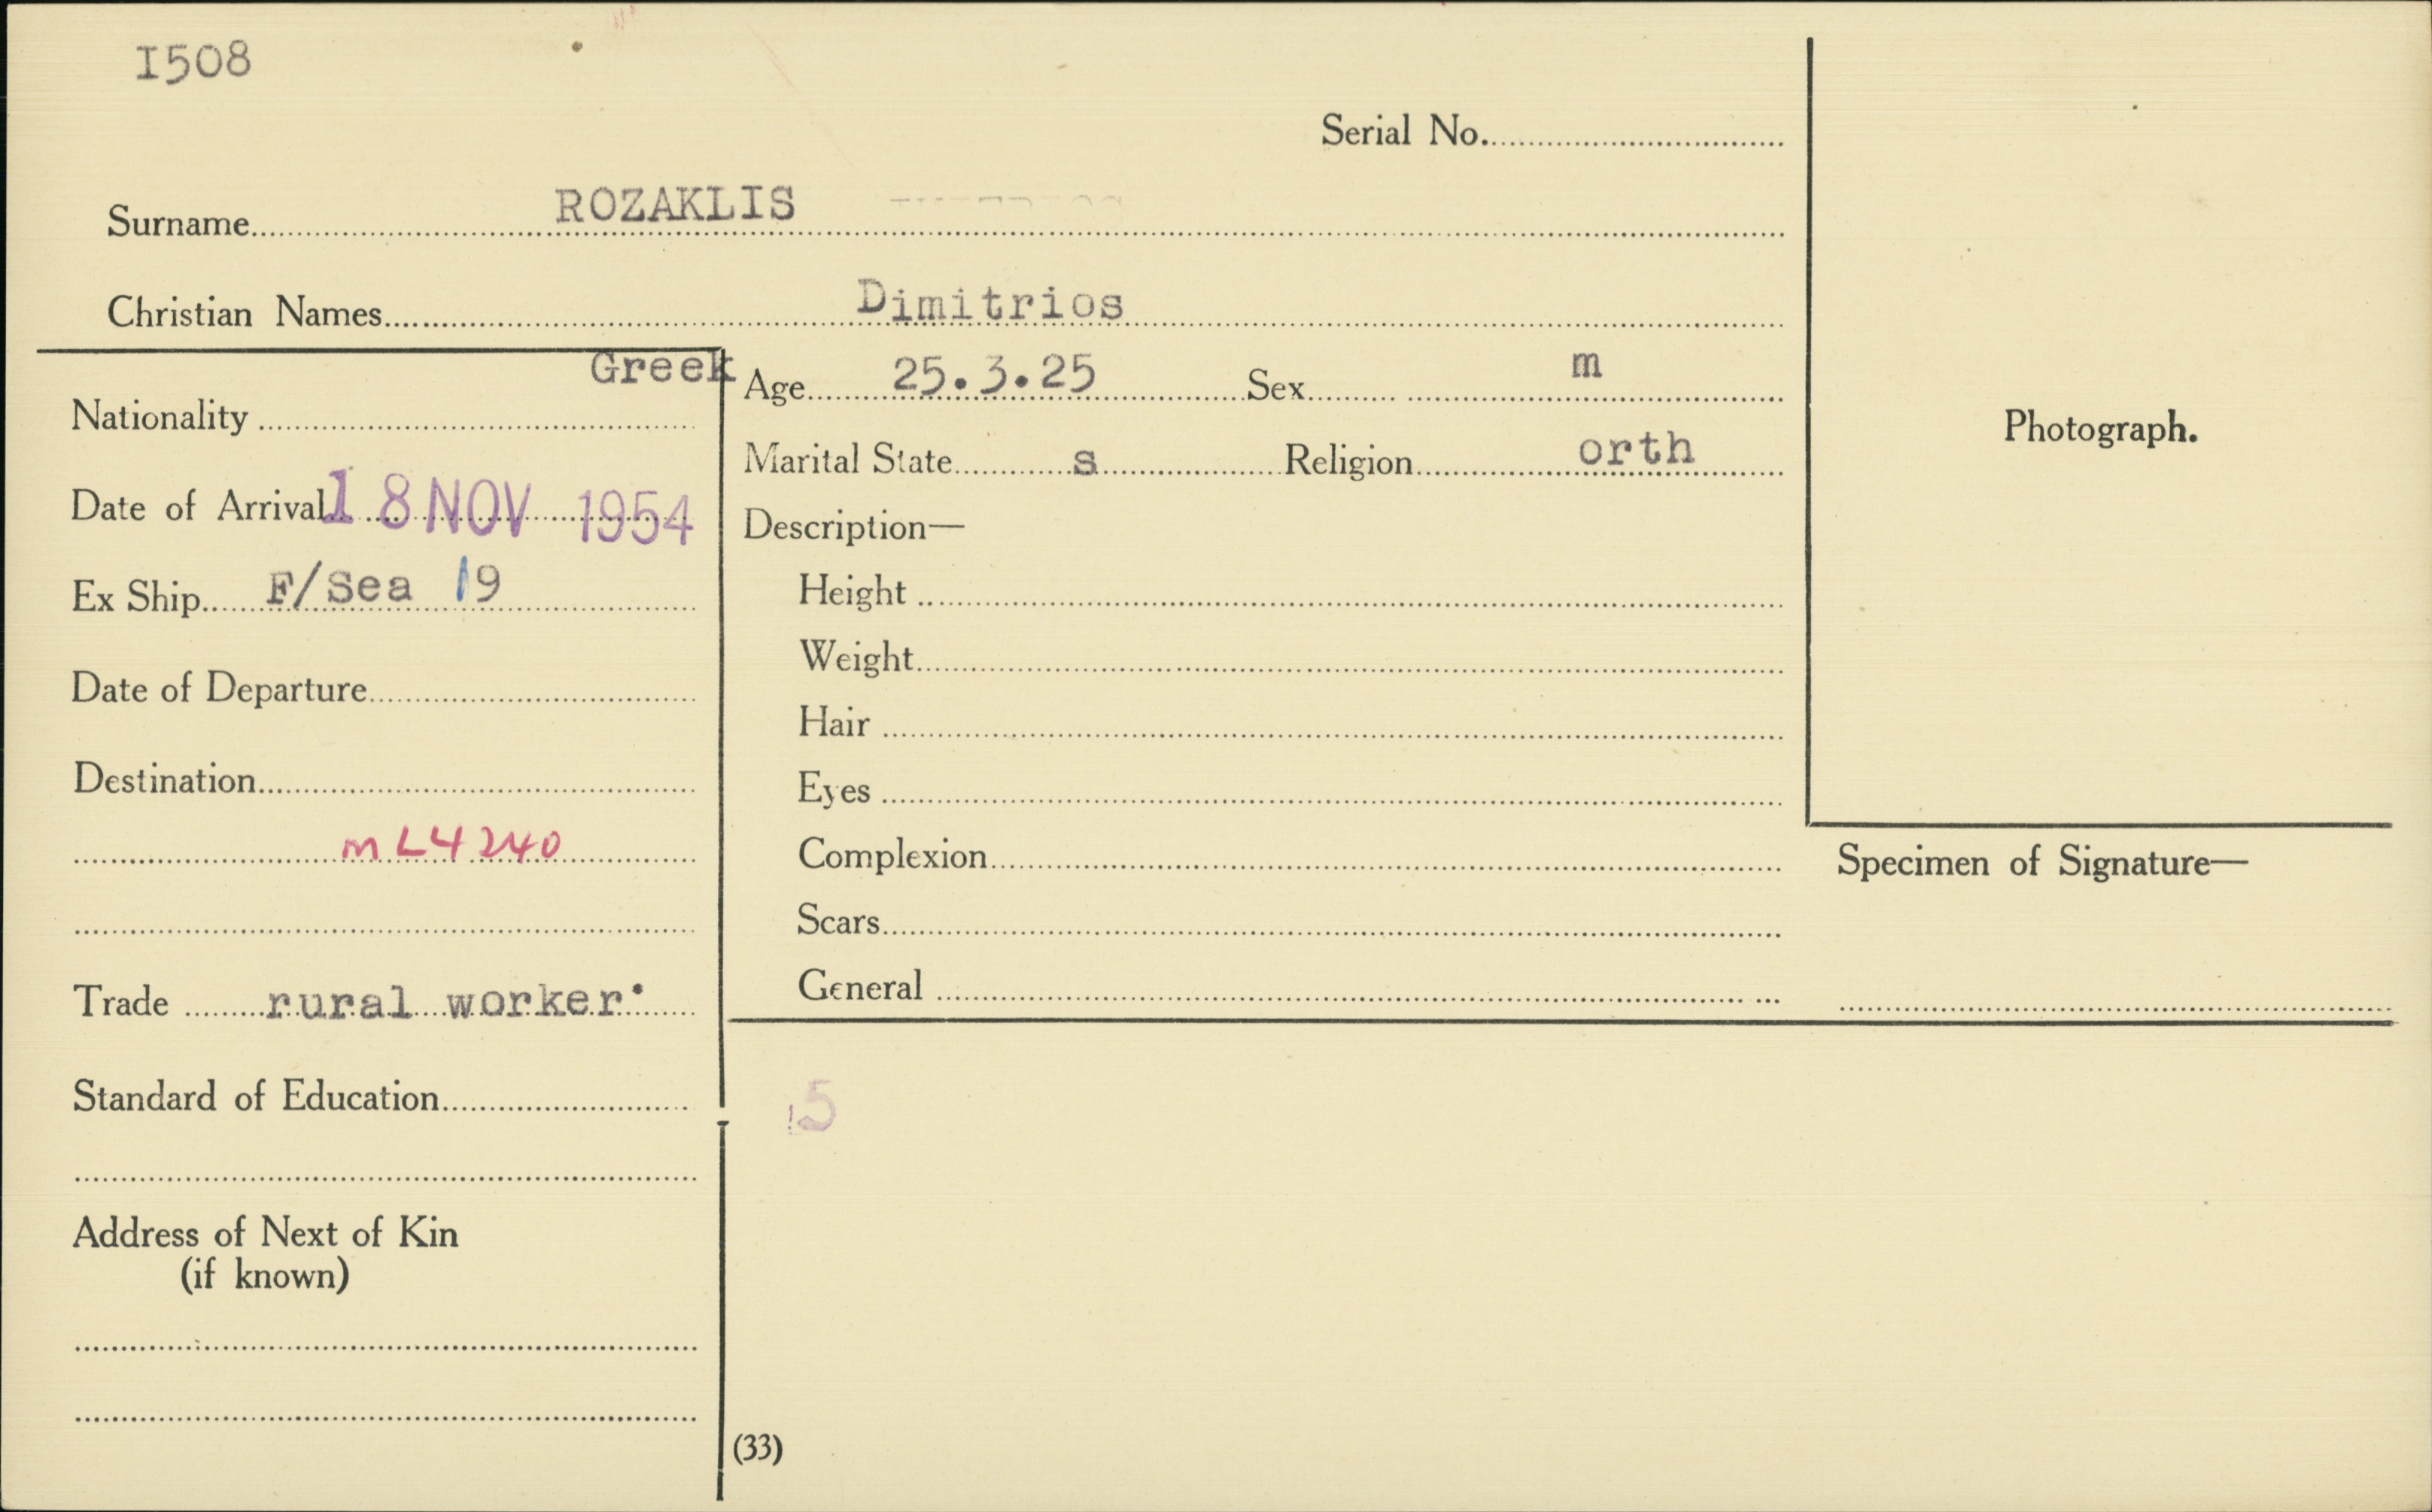 I508
Serial No.
Surname ROZAKLIS
Christian Names Dimitrios
Nationality Greek
Age 25.3.25 Sex m
Marital State s Religion orth
Date of Arrival 18 NOV 1954
Description—
Ex Ship F/Sea 19
Height
Weight
Date of Departure
Hair
Destination
Eyes
mL4240
Complexion
Scars
Trade rural worker
General
Photograph.
Specimen of Signature—
Standard of Education
5
Address of Next of Kin
(if known)
(33)